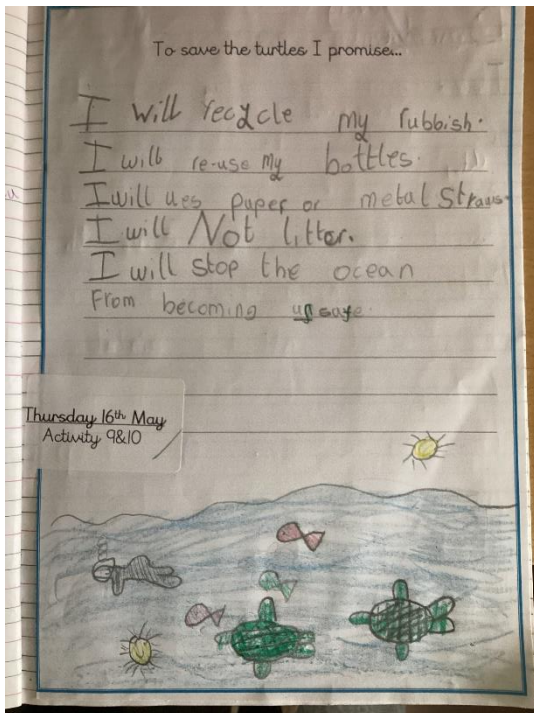 To save the turtles I promise...
I will recycle my rubbish.
I will re-use my bottles.
I will ues paper or metal straws.
I will Not litter.
I will stop the ocean
From becoming unsafe.
Thursday 16th May
Activity 9&10